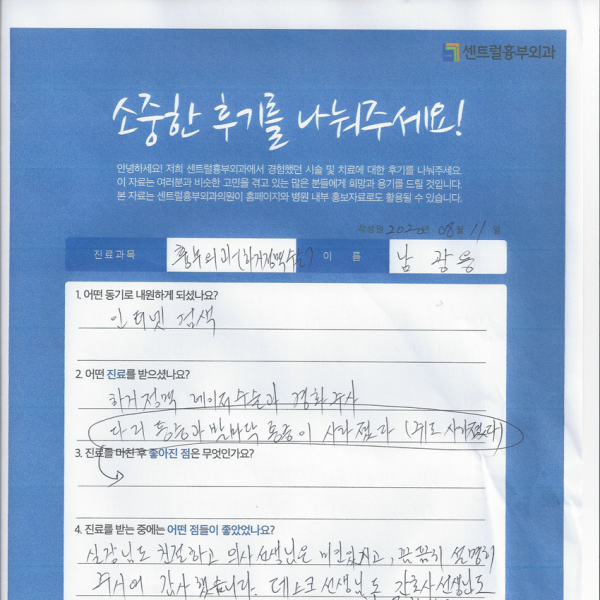 센트럴흉부외과
소중한 후기를 나눠주세요!
안녕하세요! 저희 센트럴흉부외과에서 경험했던 시술 및 치료에 대한 후기를 나눠주세요.
이 자료는 여러분과 비슷한 고민을 겪고 있는 많은 분들에게 희망과 용기를 드릴 것입니다.
본 자료는 센트럴흉부외과의원이 홈페이지와 병원 내부 홍보자료로도 활용될 수 있습니다.
작성일 2020년 08월 11일
진료과목 흉부외과(하거정맥수술) 이 름 남광용
1. 어떤 동기로 내원하게 되셨나요?
인터넷 검색
2. 어떤 진료를 받으셨나요?
하거정맥 레이저수술과 경화주사
다리 통증과 발바닥 통증이 사라졌다 (쥐도 사라졌다)
3. 진료를 마친 후 좋아진 점은 무엇인가요?
4. 진료를 받는 중에는 어떤 점들이 좋았었나요?
실장님도 친절하고 의사선생님은 믿음있고, 꼼꼼히 설명해
주셔서 감사했습니다. 데스크선생님도 간호사선생님도